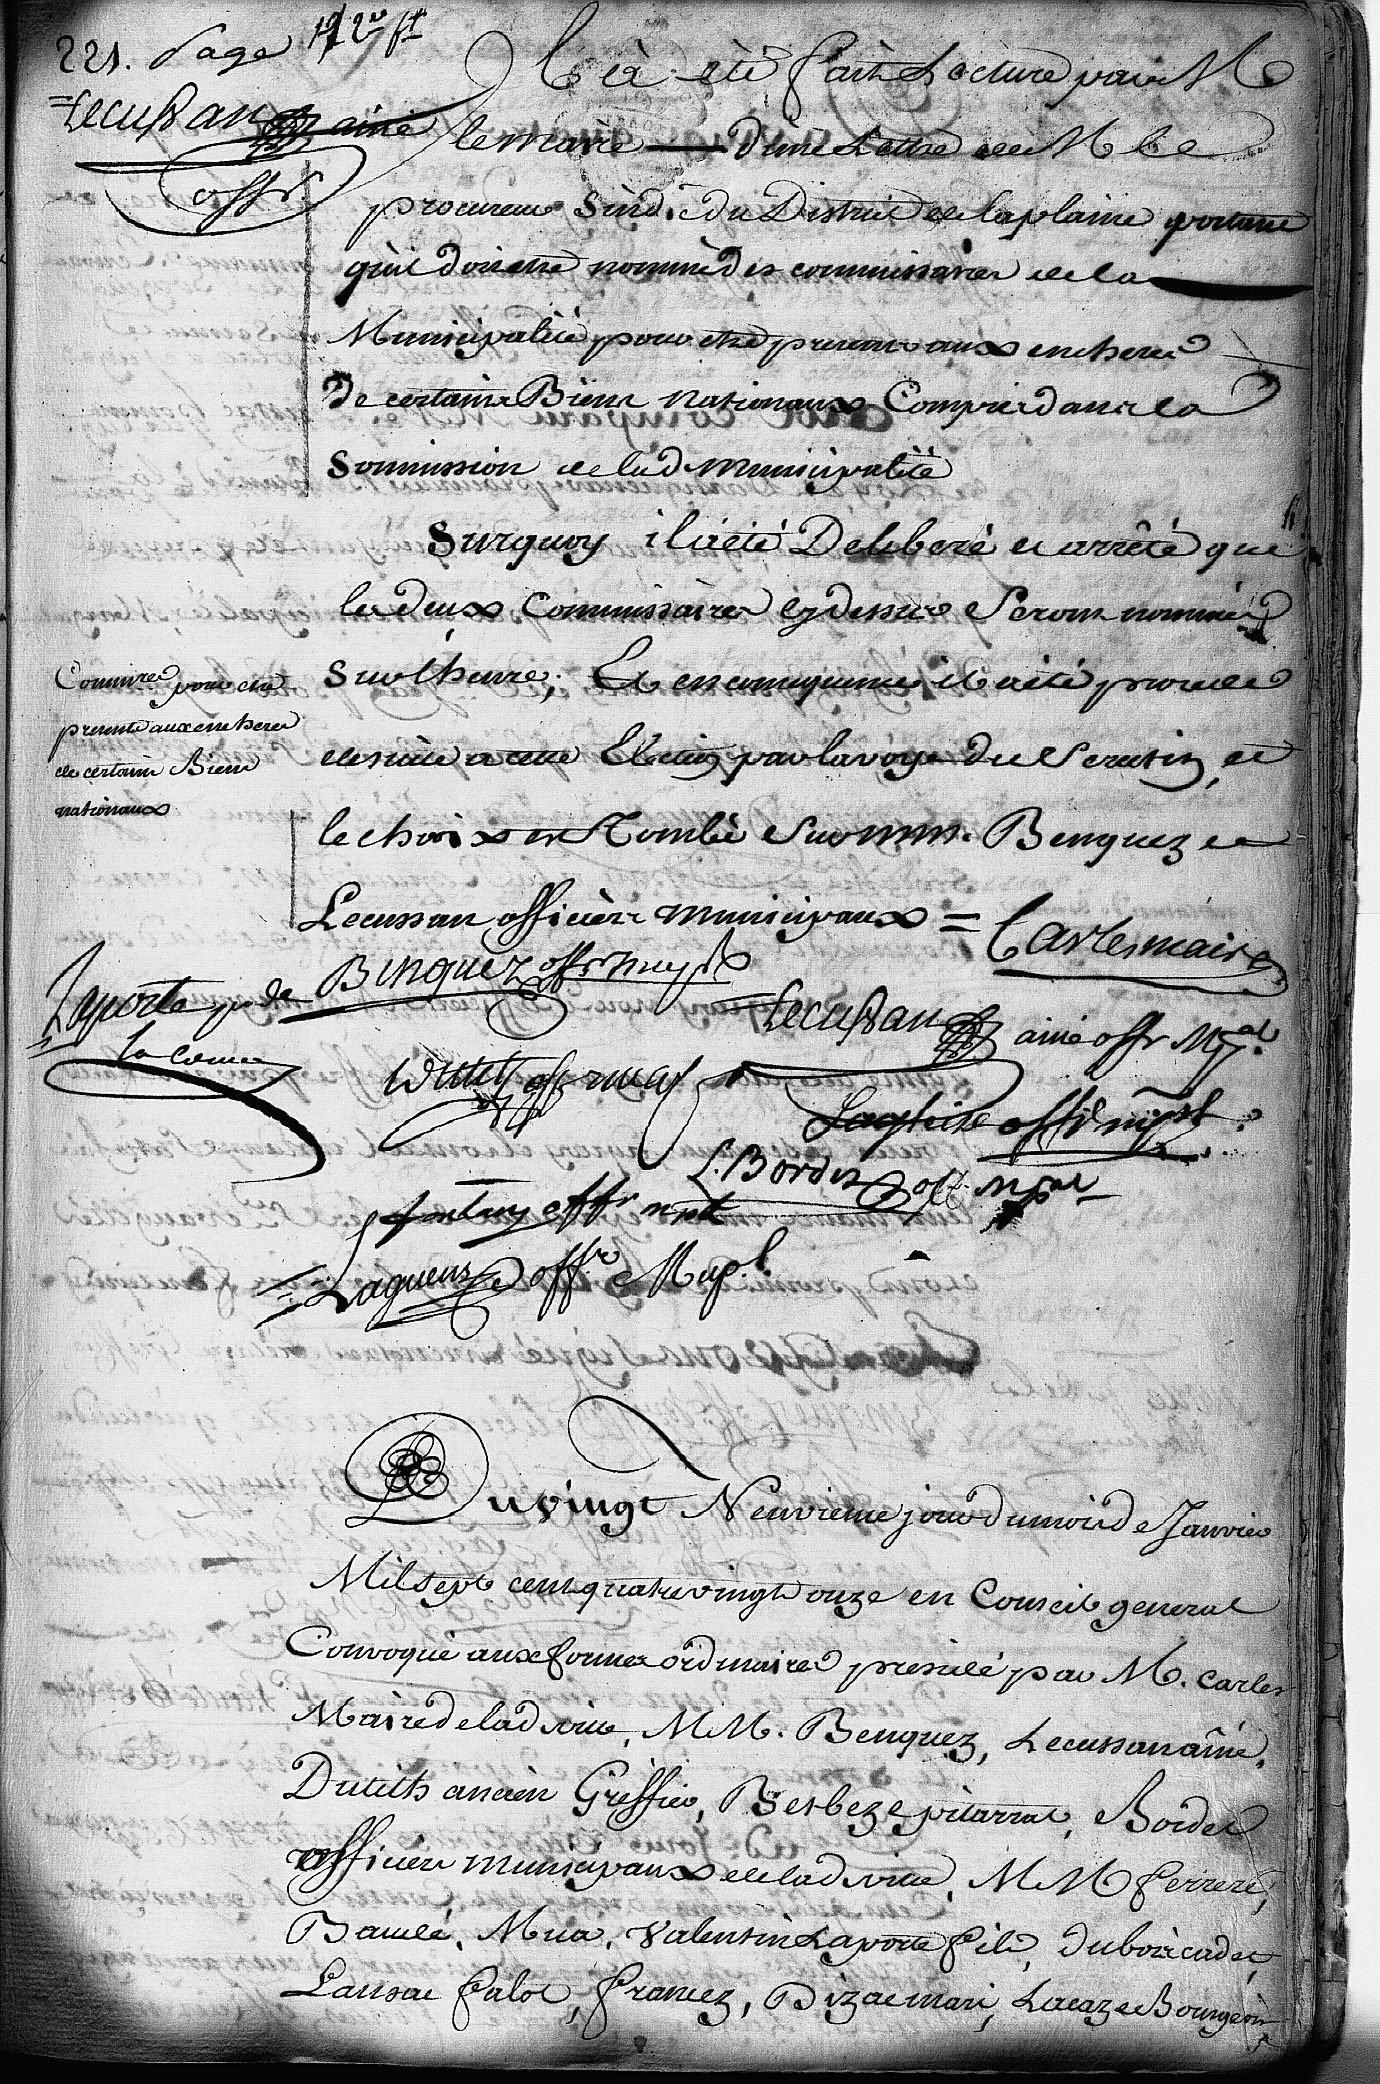 221. Page
Lecussan ainé
offr
Il a été fait Lecture par M
le maire d'une Lettre de M le
procureur Sindic du District de la plaine portant
qu'il doit etre nommé des commissaires de la
Municipalité pour etre present aux encheres
De certains Biens nationaux Compris dans la
Soumission de lad municipalité
Surquoy il a eté Deliberé et arrêté que
les deux Commissaires cy dessus Seront nommés
Sur l'heure; Et en consequence il a eté procedé
de suite a cette Election par la voye du Scrutin, et
le choix est Tombé Sur mm. Benquez et
Lecussan officiers municipaux =
Commires pour etre
present aux encheres
de certains Biens
nationaux
Carles maire
Benquez offr mupl
Laporte pr de
la comne
Lecussan ainé offr Mpal.
Dutilh offr mupl
Lagleise offr mpl
L. Bordes off. mpal
fontan offr mpl
Laguens offr Mupl.
Du vingt Neuvieme jour du mois de Janvier
Mil sept cent quatre vingt onze en Conseil general
Convoqué aux formes ordinaires presidé par M. Carles
Maire de lad ville, MM. Benquez, Lecussan aîné,
Dutilh ancien Greffier, Besbeze pitarrat, Bordes
officiers municipaux de lad ville, MM ferrere,
Baulé, Mua, Valentin Laporte fils, dubois cadet,
Lansac falot, francez, Dizac mari, Lacaze Bourgeois